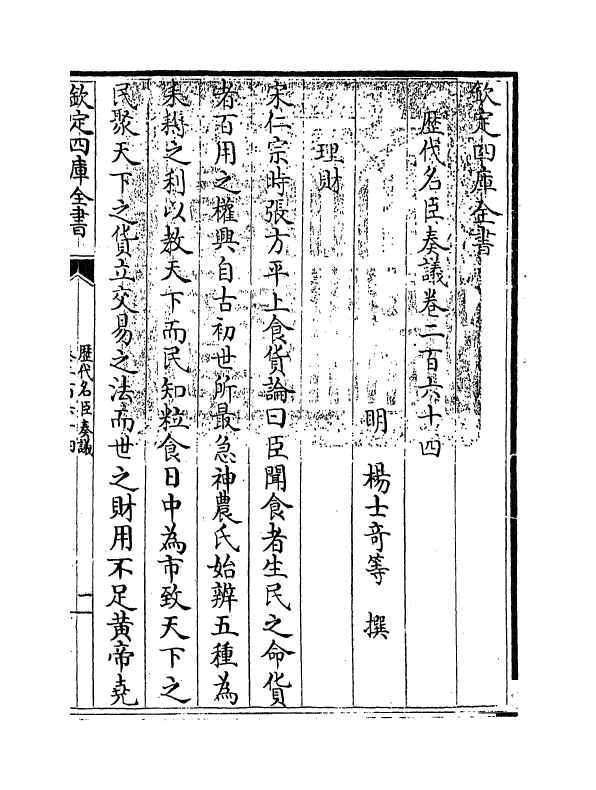 欽定四庫全書
歴代名臣奏議卷二百六十四
明　楊士竒等　撰
理財
宋仁宗時張方平上食貨論曰臣聞食者生民之命貨
者百用之權興自古初世所最急神農氏始辨五種為
耒耨之利以教天下而民知粒食日中為市致天下之
民聚天下之貨立交易之法而世之財用不足黄帝堯
欽定四庫全書
歴代名臣奏議
卷二百六十四
一